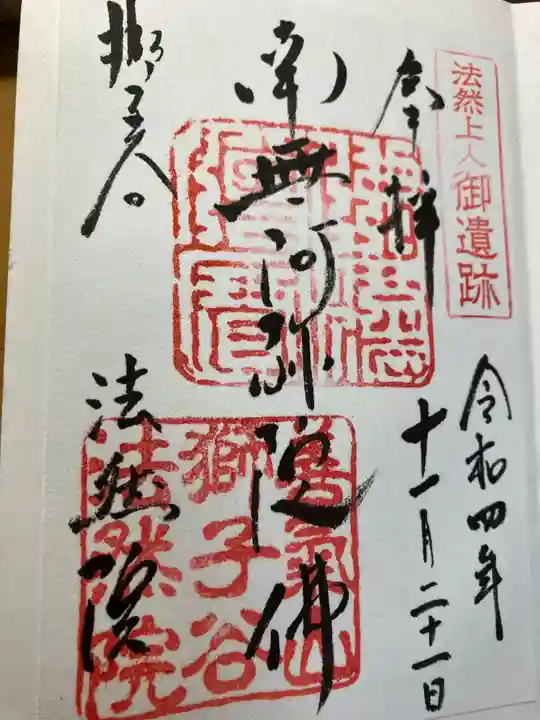 法然上人御遺跡
令和四年
十一月二十一日
奉拝
南無阿弥陀佛
獅子谷
法然院
善氣山
獅子谷
法然院